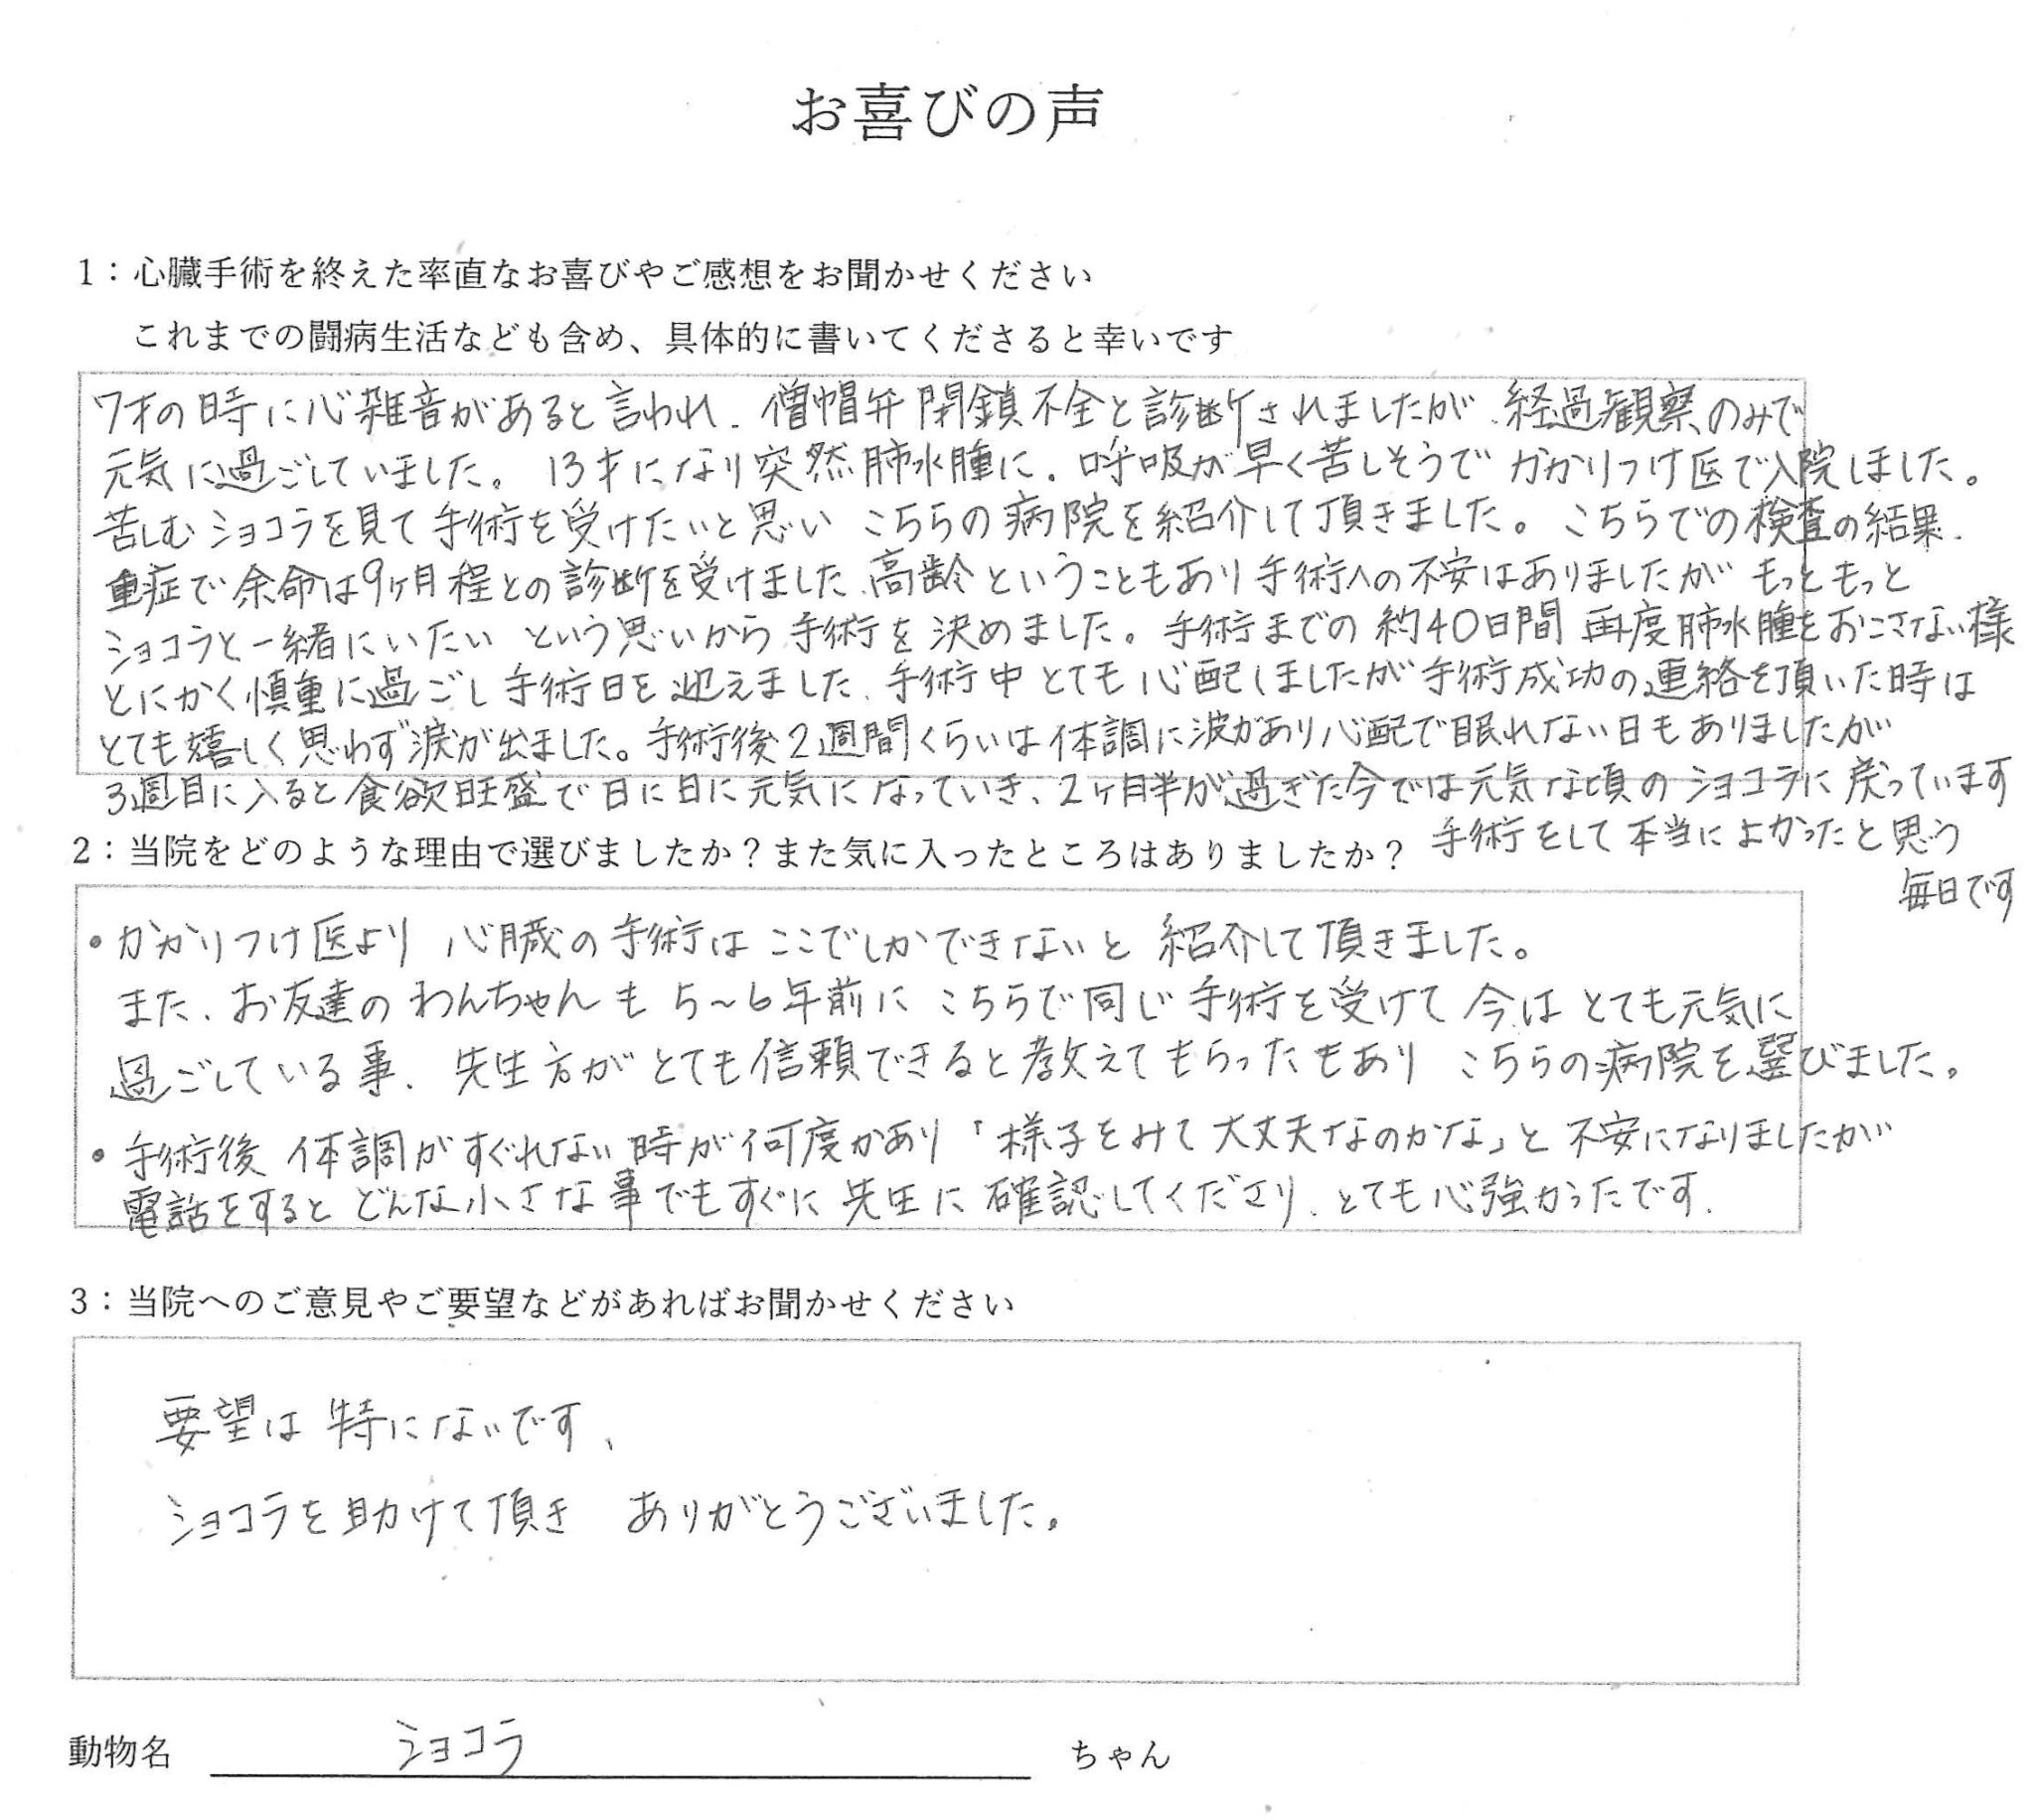 お喜びの声
1：心臓手術を終えた率直なお喜びやご感想をお聞かせください
これまでの闘病生活なども含め、具体的に書いてくださると幸いです
7才の時に心雑音があると言われ、僧帽弁閉鎖不全と診断されましたが、経過観察のみで
元気に過ごしていました。13才になり突然肺水腫に。呼吸が早く苦しそうでかかりつけ医で入院しました。
苦しむショコラを見て手術を受けたいと思い こちらの病院を紹介して頂きました。こちらでの検査の結果、
重症で余命は9ヶ月程との診断を受けました、高齢ということもあり手術への不安はありましたが もっともっと
ショコラと一緒にいたい という思いから手術を決めました。手術までの約40日間 再度肺水腫をおこさない様
とにかく慎重に過ごし手術日を迎えました、手術中とても心配しましたが手術成功の連絡を頂いた時は
とても嬉しく思わず涙が出ました。手術後2週間くらいは体調に波があり心配で眠れない日もありましたが
3週目に入ると食欲旺盛で日に日に元気になっていき、2ヶ月半が過ぎた今では元気な頃のショコラに戻っています
手術をして本当によかったと思う
毎日です
2：当院をどのような理由で選びましたか？また気に入ったところはありましたか？
・かかりつけ医より 心臓の手術はここでしかできないと 紹介して頂きました。
また、お友達のわんちゃんも5～6年前にこちらで同じ手術を受けて今はとても元気に
過ごしている事、先生方がとても信頼できると教えてもらったもあり こちらの病院を選びました。
・手術後 体調がすぐれない時が何度かあり「様子をみて大丈夫なのかな」と不安になりましたが
電話をするとどんな小さな事でもすぐに先生に確認してくださり、とても心強かったです、
3：当院へのご意見やご要望などがあればお聞かせください
要望は特にないです、
ショコラを助けて頂き ありがとうございました。
動物名 ショコラ ちゃん